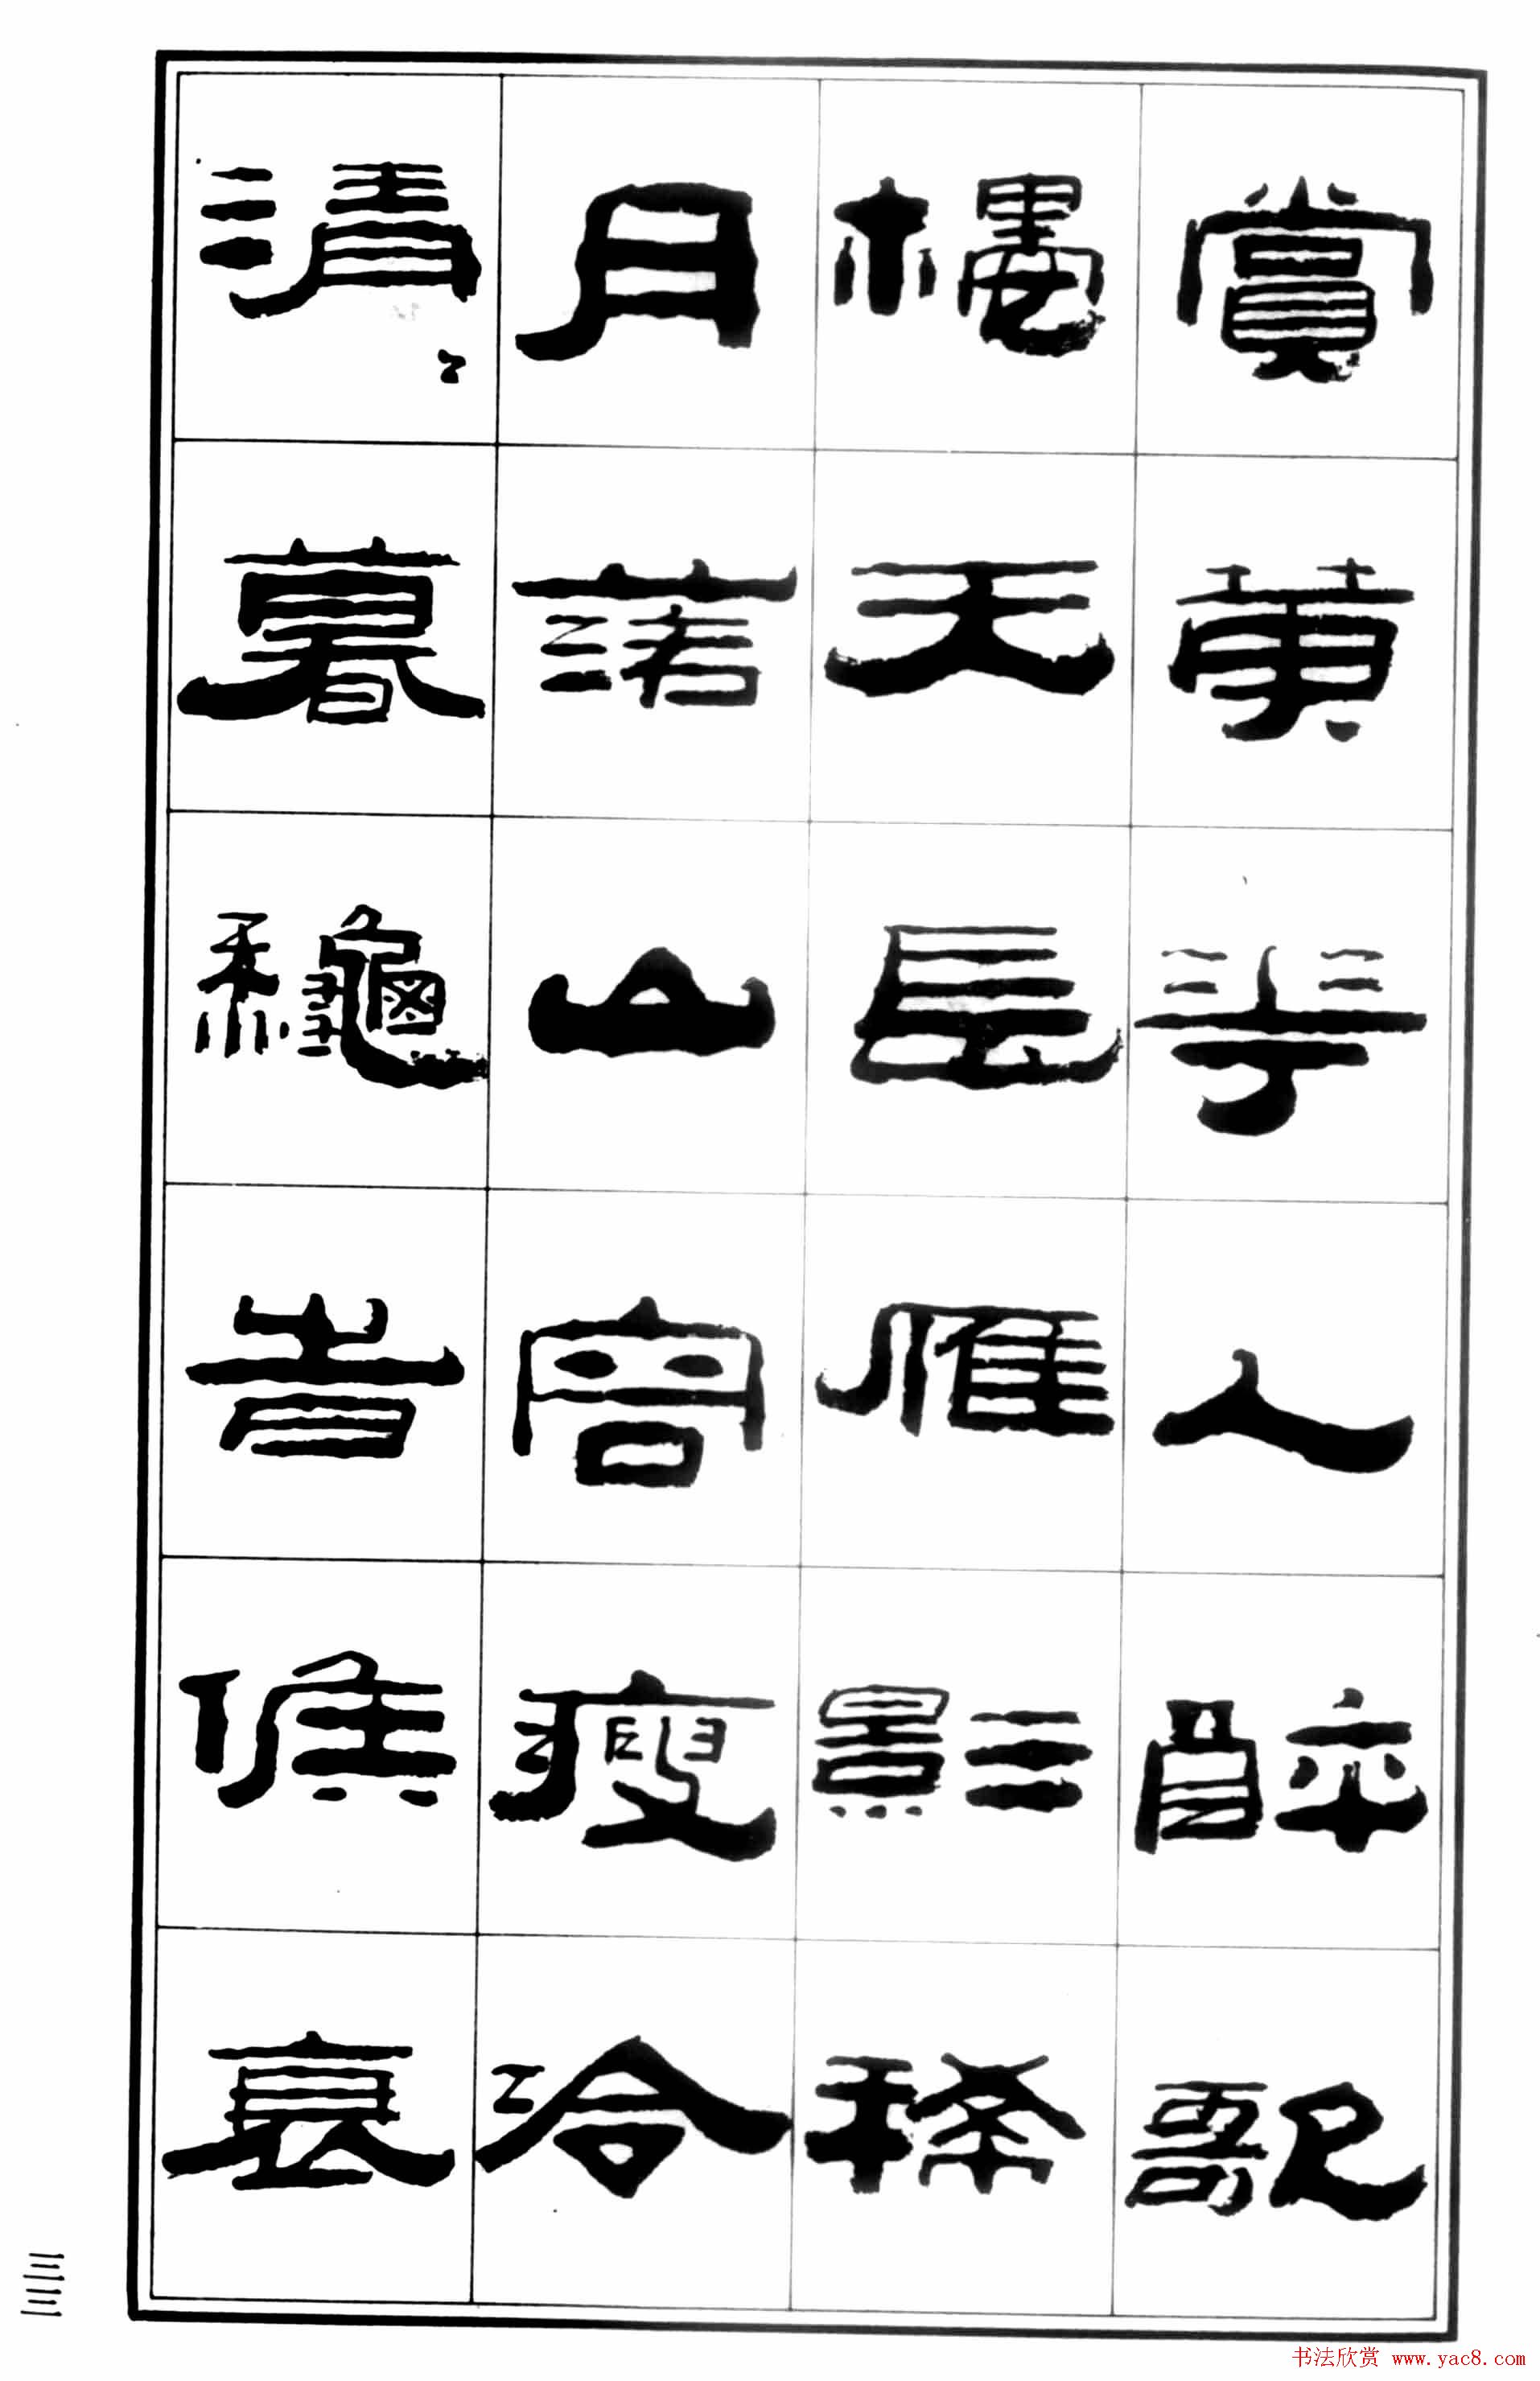 賞黃華人醉歌
樓天長雁影稀
月落山容瘦冷
清〻暮穐旹候衰
三三
书法欣赏 www.yac8.com